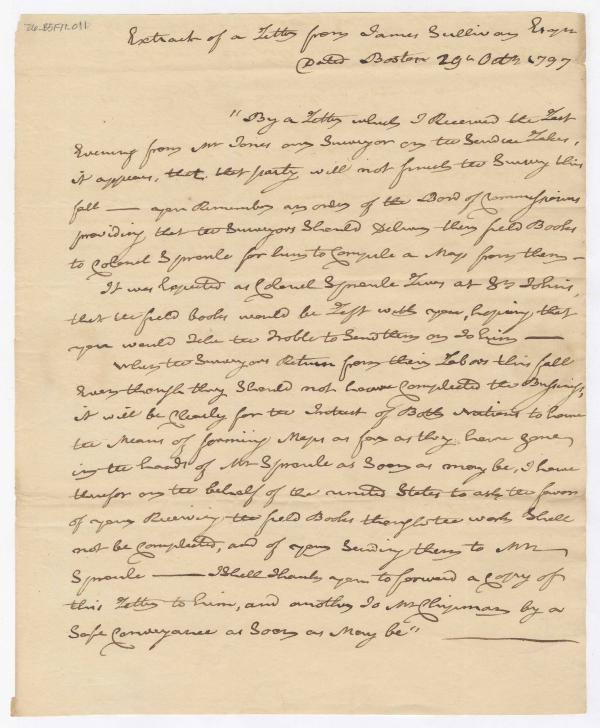 Extract of a Letter from James Sullivan Esqr
Dated Boston 29th Octr 1797
"By a Letter which I Received the Last
Evening from Mr Jones our Surveyor on the
it appears, that that party will not finish the Survey this
fall — you Remember an order of the Bord of Commissioners
providing that the Surveyors Should Deliver their field Books
to Colonel Sproule for him to Compile a Map from them —
It was Expected as Colonel Sproule Lives at St Johns,
that the field books would be Left with you, hoping that
you would take the Troble to Send them on to him —
When the Surveyors Return from their Labors this fall
Even though they Should not have Compleated the Bussiness,
it will be Clearly for the Intrest of Both Nations to have
the Means of forming Maps as far as they have gone
in the hands of Mr Sproule as Soon as may be, I have
therefor on the behalf of the united States to ask the favor
of your Receiving the field Books though the work Shall
not be Compleated, and of your Sending them to Mr
Sproule — I Shall thank you to forward a Copy of
this Letter to him, and another to Mr Chipman by a
Safe Conveyance as Soon as May be"